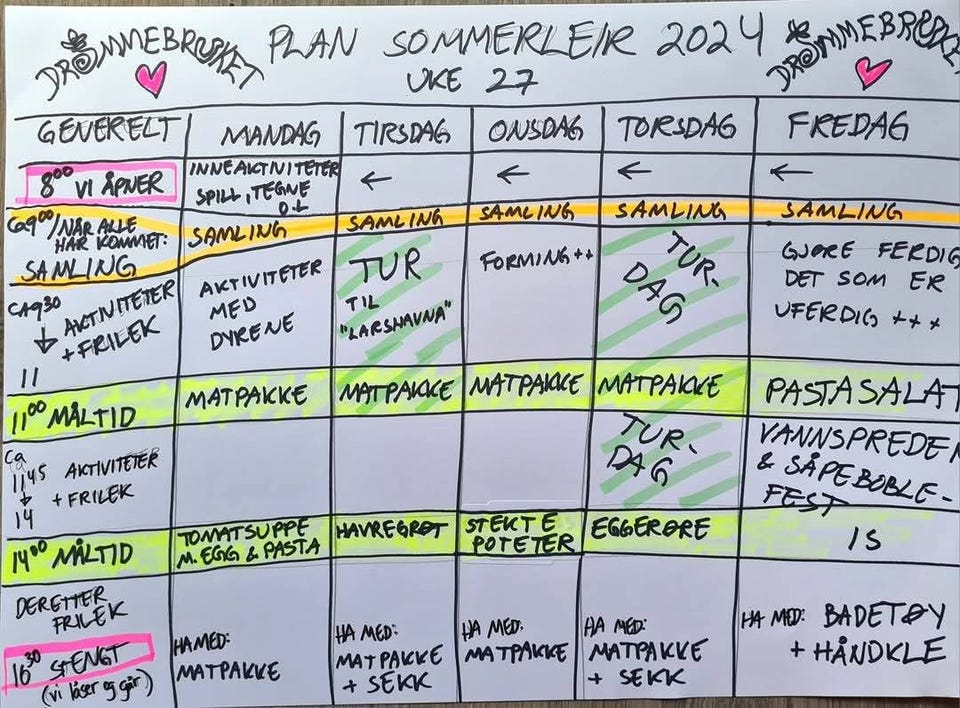 DRØMMEBRUKET PLAN SOMMERLEIR 2024 DRØMMEBRUKET
UKE 27
GEVERELT MANDAG TIRSDAG ONSDAG TORSDAG FREDAG
8⁰⁰ VI ÅPNER
INNEAKTIVITETER
SPILL, TEGNE
O.L
← ← ← ←
Ca 9⁰⁰/NÅR ALLE
HAR KOMMET:
SAMLING
SAMLING SAMLING SAMLING SAMLING SAMLING
CA 9³⁰
↓ AKTIVITETER
+ FRILEK
11
AKTIVITETER
MED
DYRENE
TUR
TIL
"LARSHAVNA"
FORMING ++
TUR-
DAG
GJØRE FERDIG
DET SOM ER
UFERDIG +++
11⁰⁰ MÅLTID
MATPAKKE MATPAKKE MATPAKKE MATPAKKE PASTASALAT
Ca
11⁴⁵ AKTIVITETER
↓ + FRILEK
14
TUR-
DAG
VANNSPREDER
& SÅPEBOBLE-
FEST
14⁰⁰ MÅLTID
TOMATSUPPE
M. EGG & PASTA
HAVREGRØT
STEKTE
POTETER
EGGERØRE
IS
DERETTER
FRILEK
16³⁰ STENGT
(vi låser og går)
HA MED:
MATPAKKE
HA MED:
MATPAKKE
+ SEKK
HA MED:
MATPAKKE
HA MED:
MATPAKKE
+ SEKK
HA MED: BADETØY
+ HÅNDKLE